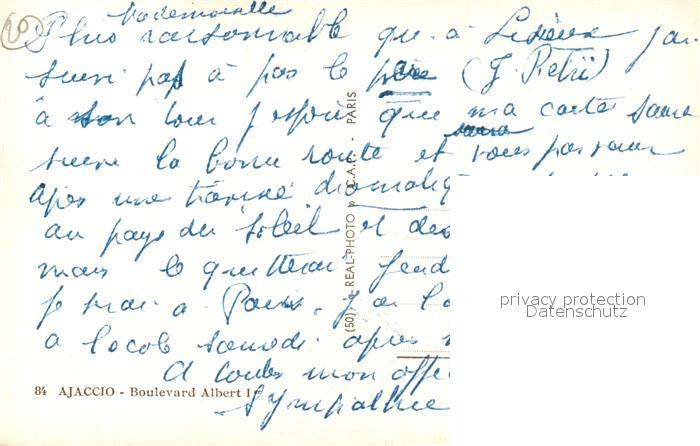 Mademoiselle
Plus raisonnable qu'à Lisieux j'ai
suivi pas à pas le père (J. Pietri)
à son tour j'espère que ma carte saura
suivre la bonne route et vous parvenir
après une traversée
au pays du soleil et des
mais le quitterai
je serai à Paris. J'ai
à samedi après
A toutes mon
Sympathie
84 AJACCIO - Boulevard Albert Ier
(50) REAL-PHOTO C.A.P. - PARIS
privacy protection
Datenschutz